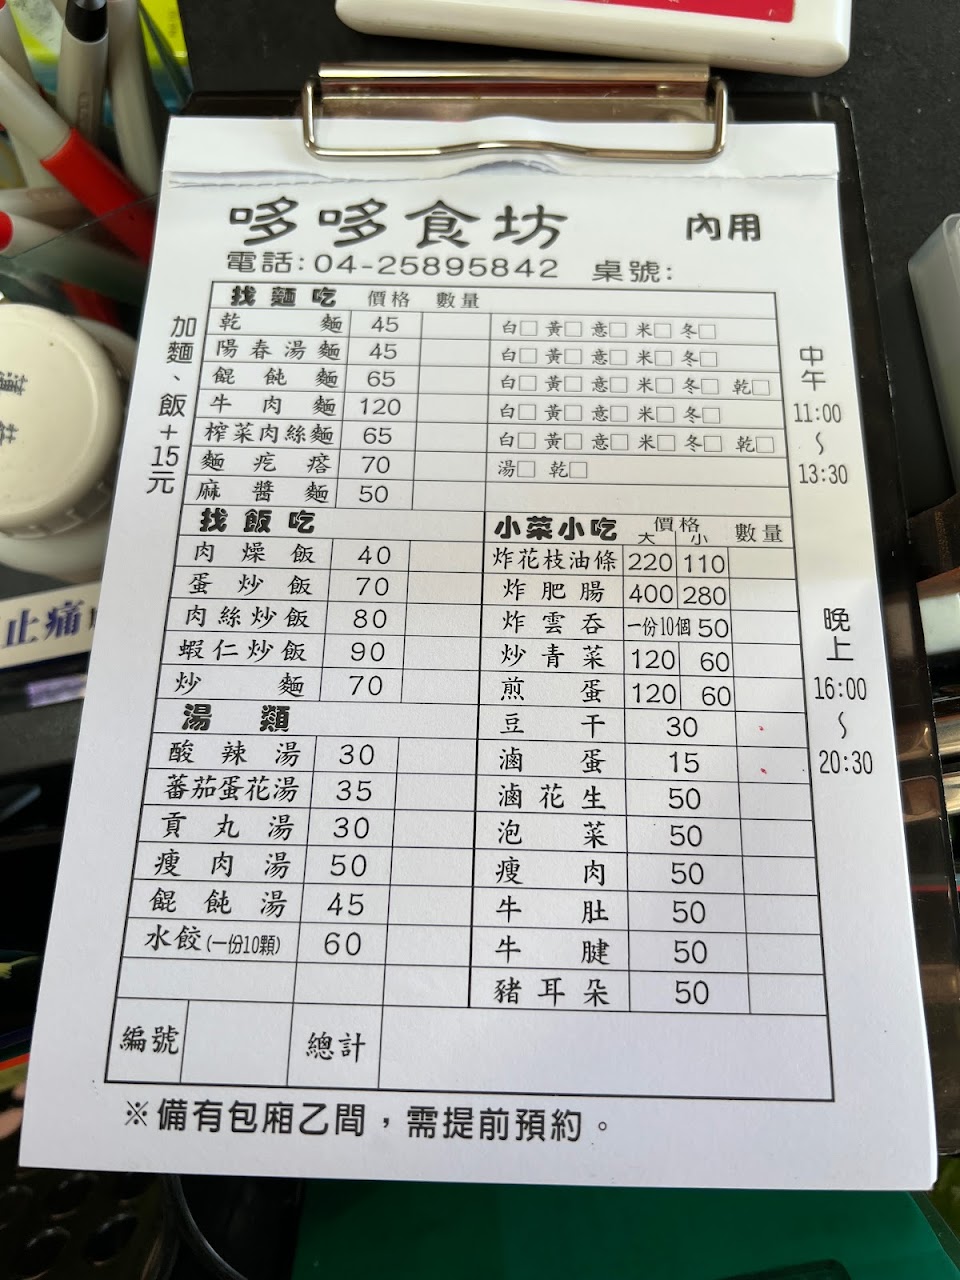 哆哆食坊 內用
電話:04-25895842 桌號:
加麵、飯+15元
找麵吃 價格 數量
乾麵 45 白□ 黃□ 意□ 米□ 冬□
陽春湯麵 45 白□ 黃□ 意□ 米□ 冬□
餛飩麵 65 白□ 黃□ 意□ 米□ 冬□ 乾□
牛肉麵 120 白□ 黃□ 意□ 米□ 冬□
榨菜肉絲麵 65 白□ 黃□ 意□ 米□ 冬□ 乾□
麵疙瘩 70 湯□ 乾□
麻醬麵 50
找飯吃
肉燥飯 40
蛋炒飯 70
肉絲炒飯 80
蝦仁炒飯 90
炒麵 70
湯類
酸辣湯 30
蕃茄蛋花湯 35
貢丸湯 30
瘦肉湯 50
餛飩湯 45
水餃(一份10顆) 60
小菜小吃 價格 大 小 數量
炸花枝油條 220 110
炸肥腸 400 280
炸雲吞 一份10個 50
炒青菜 120 60
煎蛋 120 60
豆干 30
滷蛋 15
滷花生 50
泡菜 50
瘦肉 50
牛肚 50
牛腱 50
豬耳朵 50
編號 總計
中午
11:00
～
13:30
晚上
16:00
～
20:30
※備有包廂乙間，需提前預約。
止痛